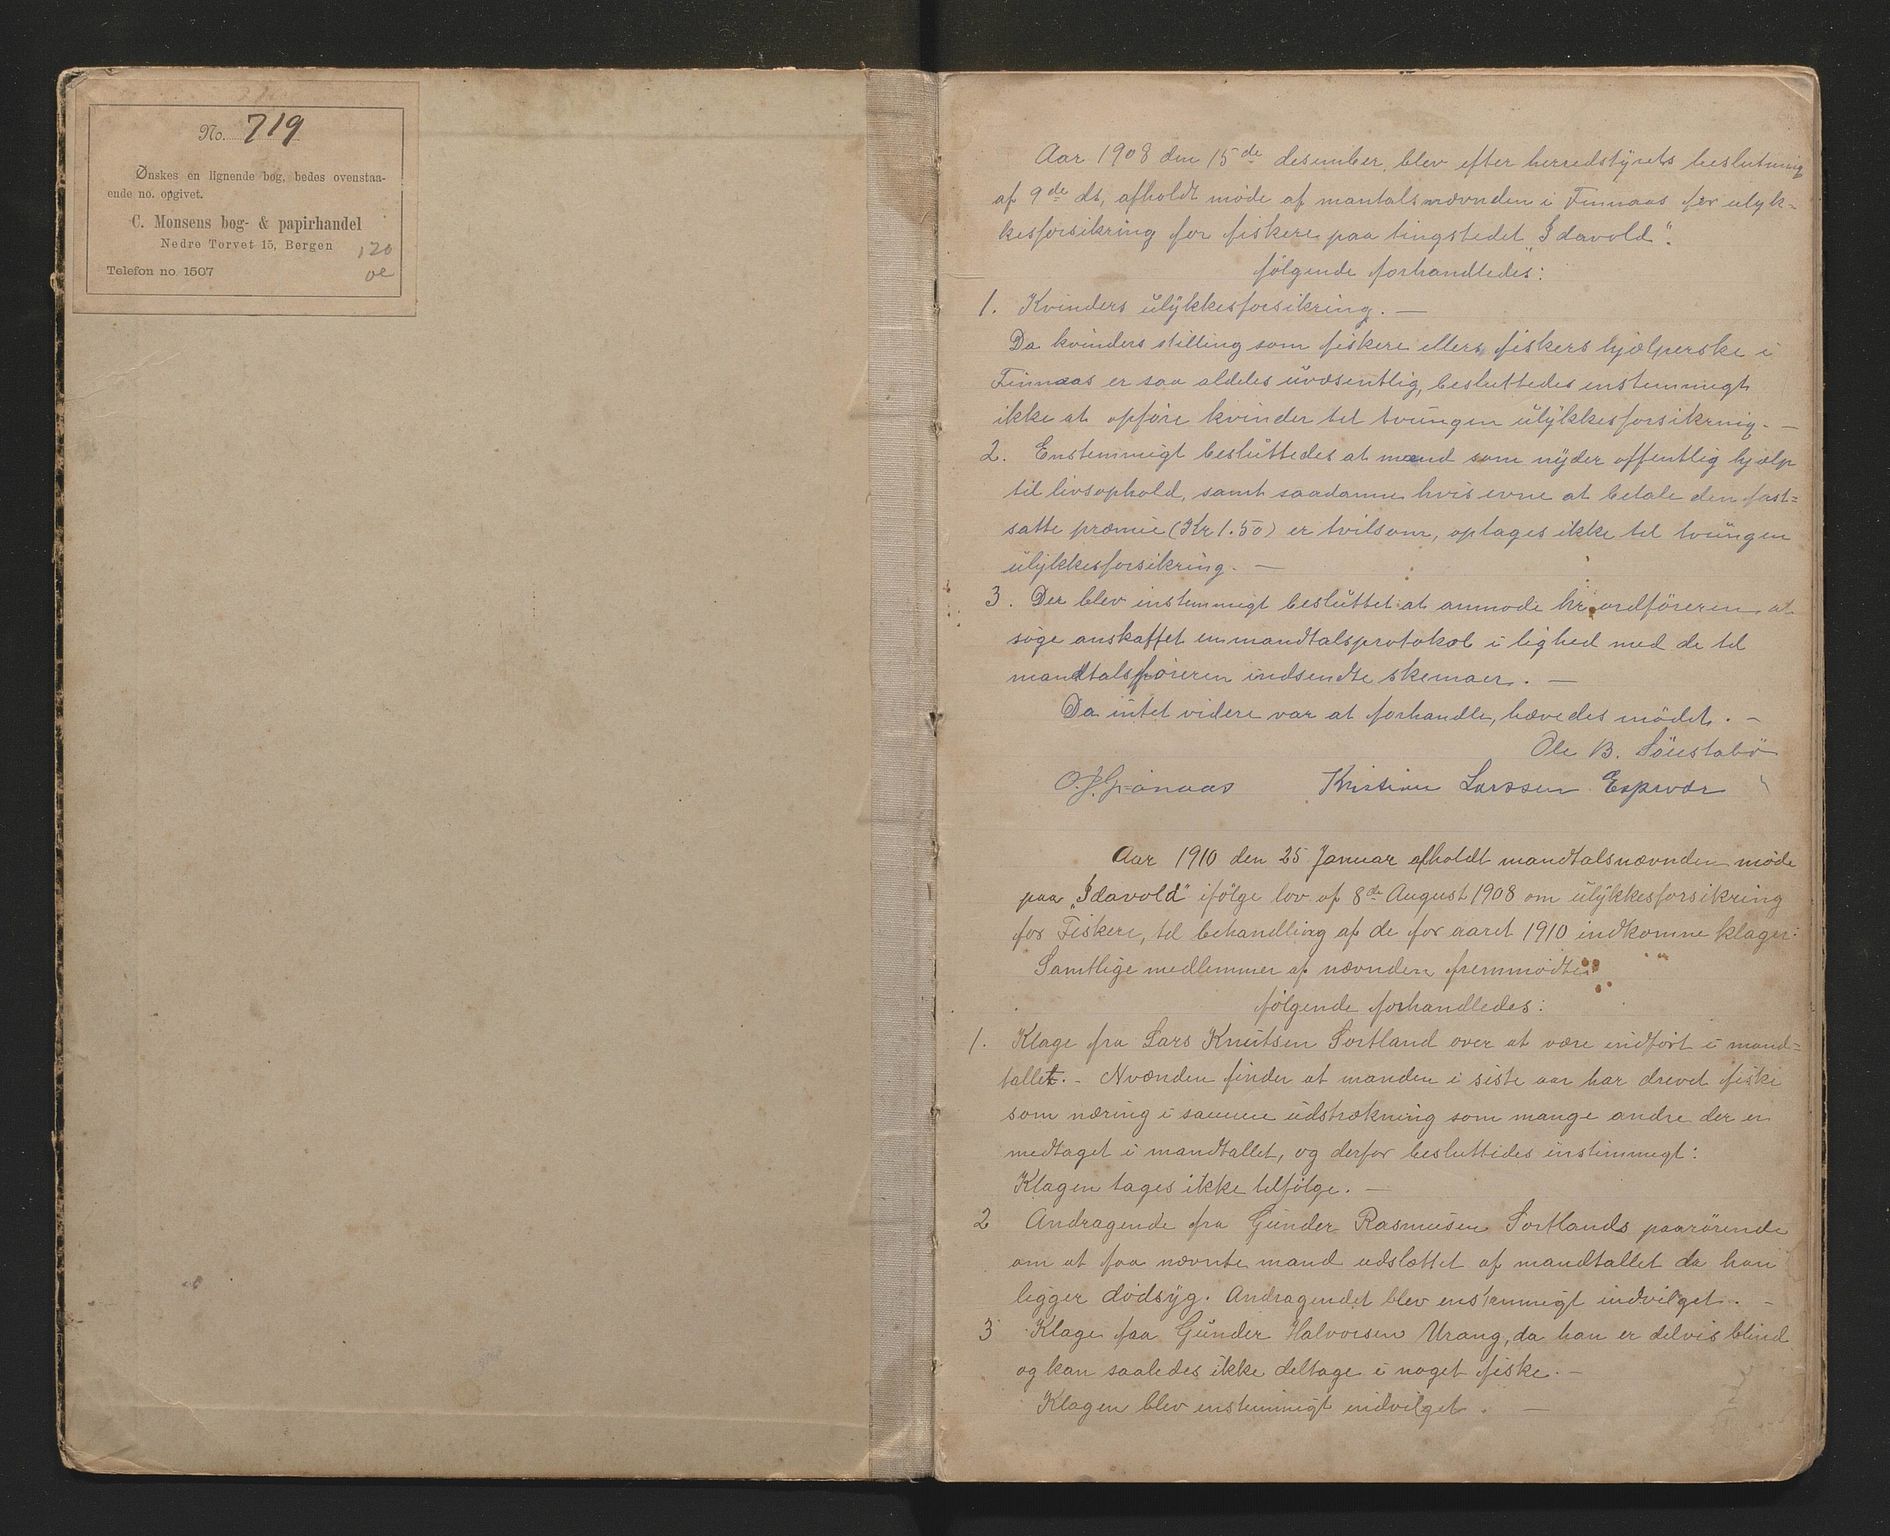 No. 719
Ønskes en lignende bog, bedes ovenstaa-
ende no. opgivet.
C. Monsens bog- & papirhandel
Nedre Torvet 15, Bergen
Telefon no. 1507
120
oe
Aar 1908 den 15de desember blev efter herredstyrets beslutning
af 9de ds, afholdt møde af mantalsnævnden i Finnaas for ulyk-
kesforsikring for fiskere paa tingstedet "Idavold".
følgende forhandledes:
1. Kvinders ulykkesforsikring. —
Da kvinders stilling som fiskere ellers fiskers hjælperske i
Finnaas er saa aldeles uvæsentlig, besluttedes enstemmigt
ikke at opføre kvinder til tvungen ulykkesforsikrnig. —
2. Enstemmigt besluttedes at mænd som nyder offentlig hjælp
til livsophold, samt saadanne hvis evne at betale den fast=
satte præmie (Kr 1.50) er tvilsom, optages ikke til tvungen
ulykkesforsikring. —
3. Der blev enstemmigt besluttet at anmode hr ordføreren at
søge anskaffet en mandtalsprotokol i lighed med de til
mandtalsføreren indsendte skemaer. —
Da intet videre var at forhandle, hævedes mødet. —
Ole B. Søustabø
O. J. Grønaas Kristian Larssen Espevær
Aar 1910 den 25 Januar afholdt mandtalsnævnden møde
paa "Idavold" ifølge lov af 8de August 1908 om ulykkesforsikring
for Fiskere, til behandling af de for aaret 1910 indkomne klager.
Samtlige medlemmer af nævnden fremmødte.
følgende forhandledes:
1. Klage fra Lars Knutsen Sortland over at være indført i mand=
tallet. - Nvænden finder at manden i siste aar har drevet fiske
som næring i samme udstrækning som mange andre der er
medtaget i mandtallet, og derfor besluttides enstemmigt:
Klagen tages ikke tilfølge. —
2 Andragende fra Gunder Rasmusen Sortlands paarørende
om at faa nævnte mand udslættet af mandtallet da han
ligger dødsyg. Andragendet blev enstemmigt indvilget. -
3 Klage fra Gunder Halvorsen Urang, da han er delvis blind
og kan saaledes ikke deltage i noget fiske. —
Klagen blev enstemmigt indvilget. —